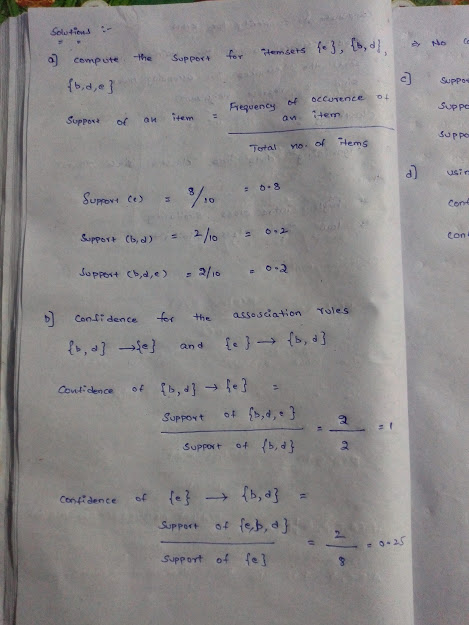 Solutions :-
a] compute the support for itemsets {e}, {b,d},
{b,d,e}
Support of an item = Frequency of occurence of
an item
Total no. of items
Support (e) = 8/10 = 0.8
Support (b,d) = 2/10 = 0.2
Support (b,d,e) = 2/10 = 0.2
b] Confidence for the assosciation rules
{b,d} → {e} and {e} → {b,d}
Confidence of {b,d} → {e} =
Support of {b,d,e}
Support of {b,d}
= 2
2
= 1
Confidence of {e} → {b,d} =
Support of {e,b,d}
Support of {e}
= 2
8
= 0.25
⇒ No
c] Suppo
Suppo
Supp
d] usin
Conf
Con